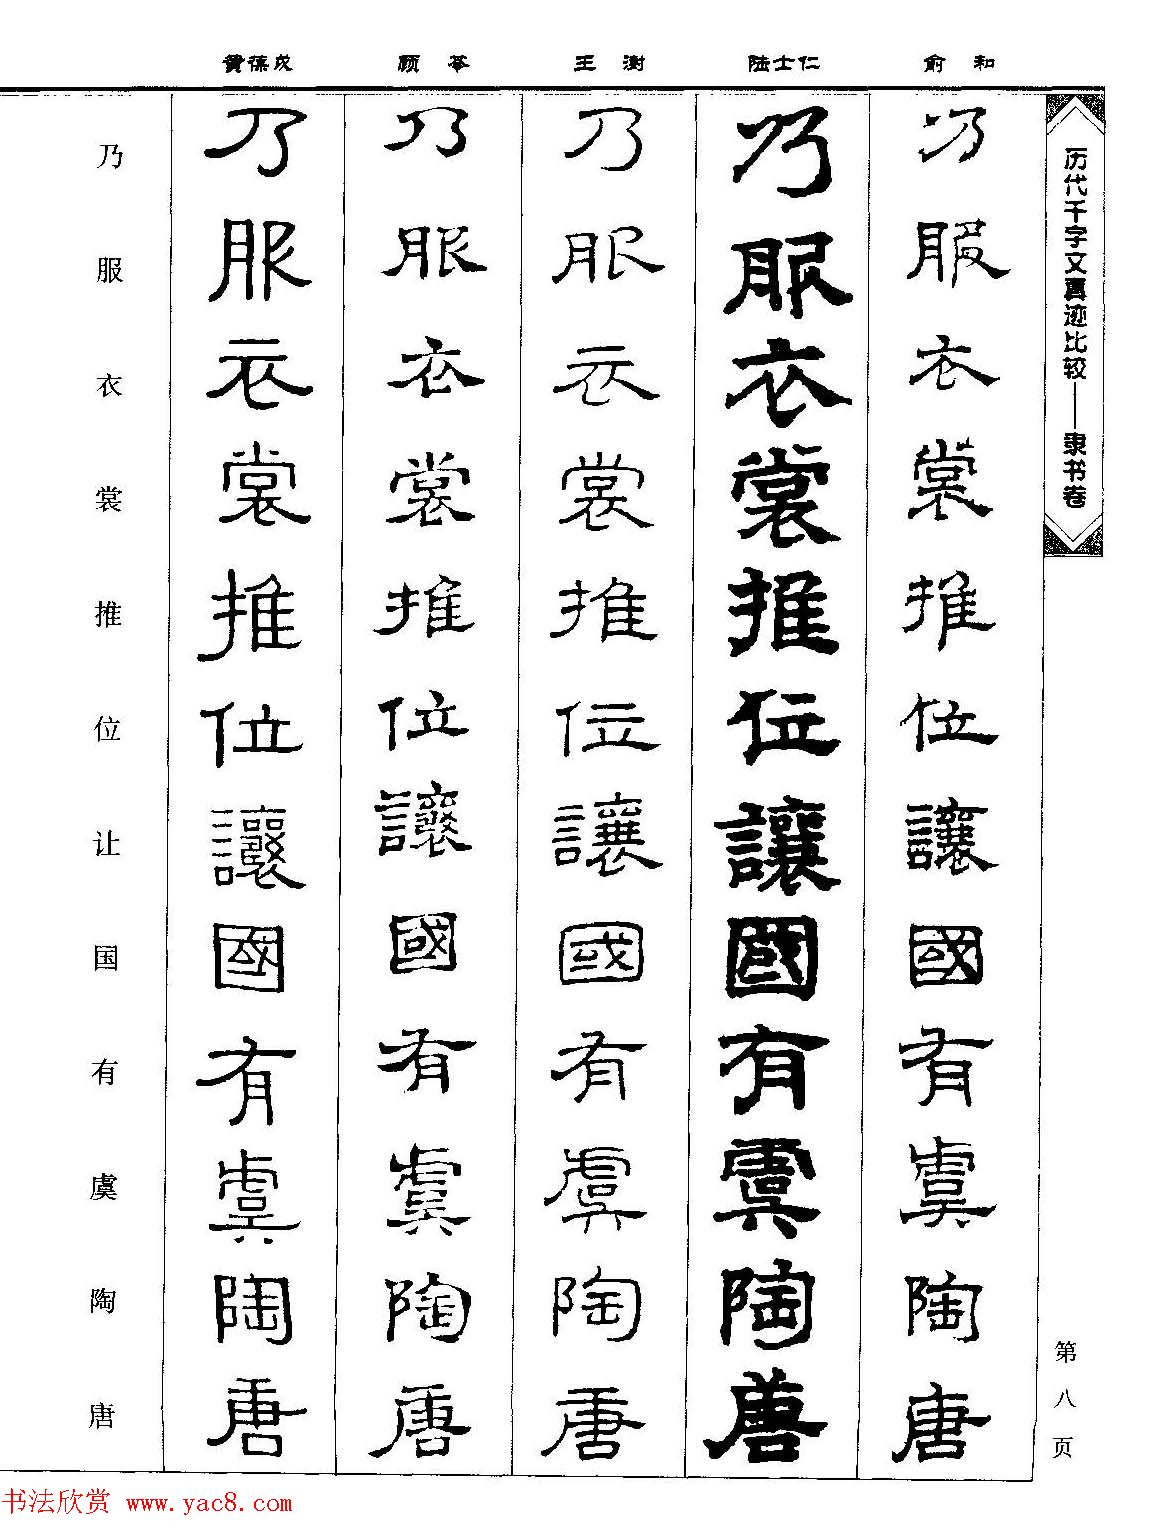 俞和
陆士仁
王澍
顾苓
黄葆戉
历代千字文真迹比较——隶书卷
乃服衣裳推位讓國有虞陶唐
乃服衣裳推位讓國有虞陶唐
乃服衣裳推位讓國有虞陶唐
乃服衣裳推位讓國有虞陶唐
乃服衣裳推位讓國有虞陶唐
乃服衣裳推位让国有虞陶唐
第八页
书法欣赏 www.yac8.com